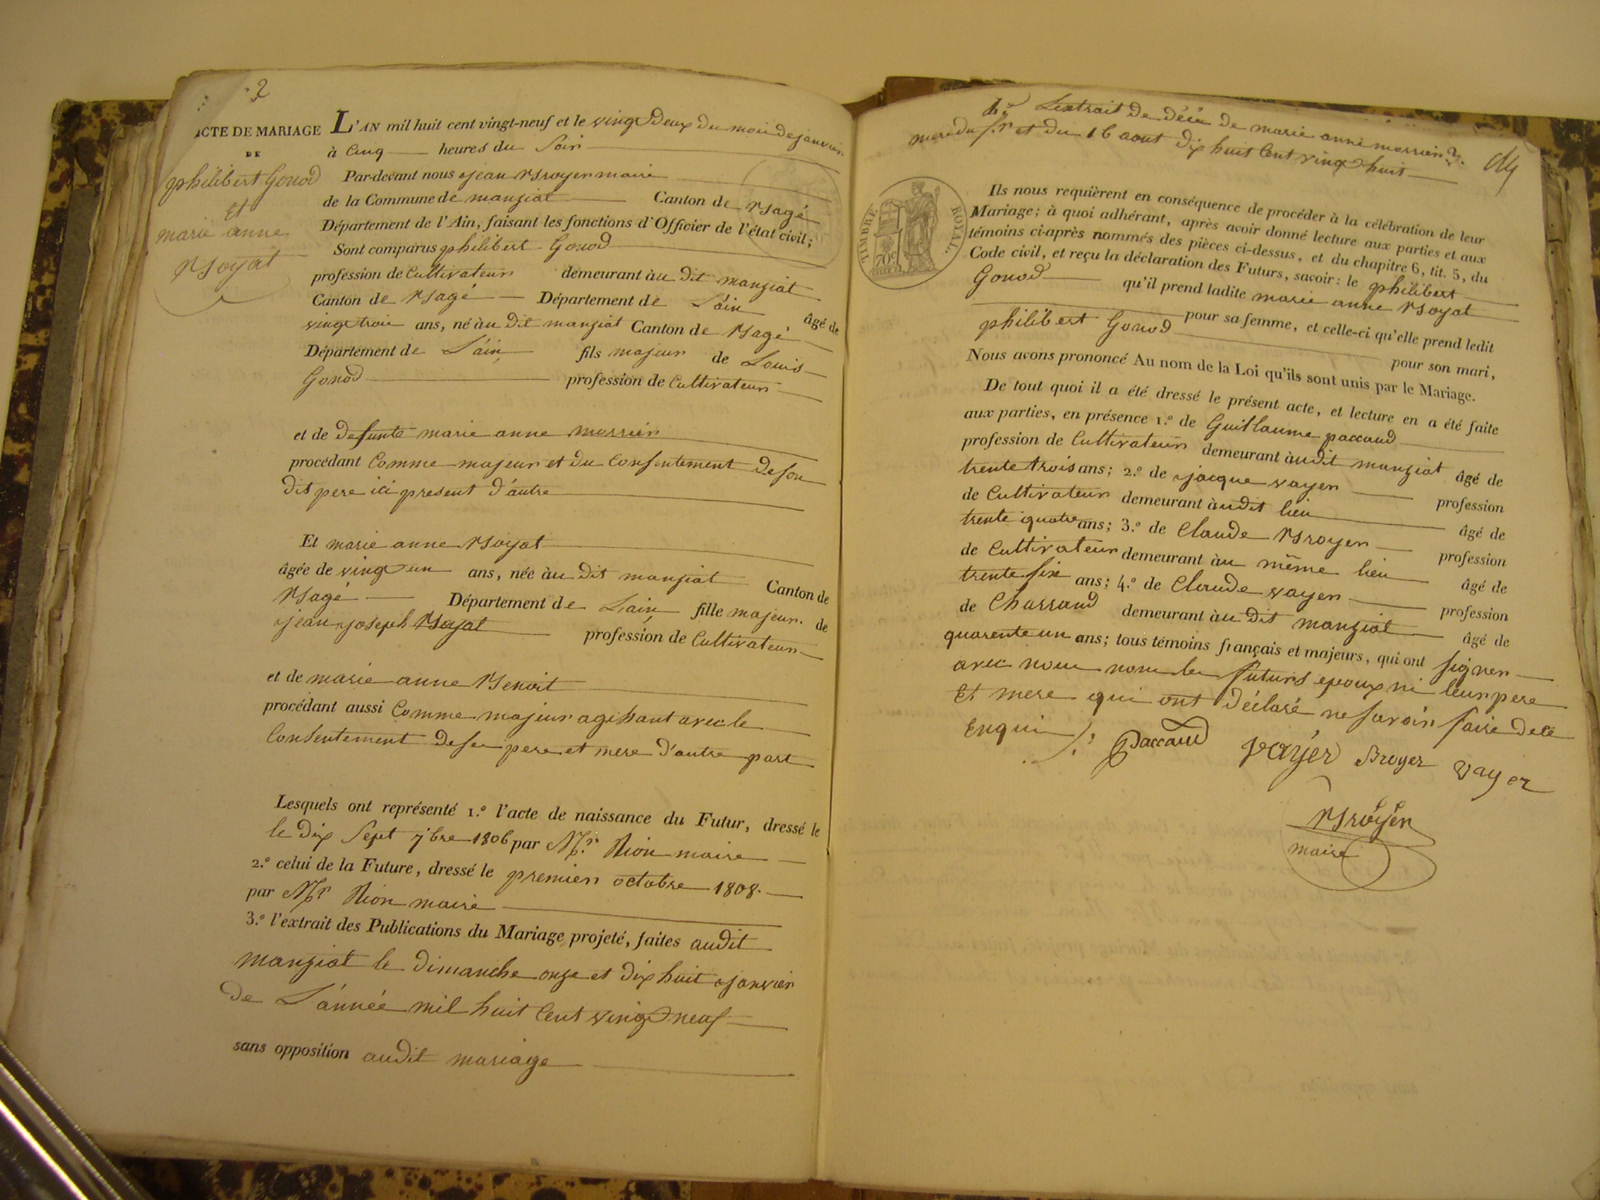 2
ACTE DE MARIAGE
DE
philibert Gonod
Et
marie anne
Broyat
L'AN mil huit cent vingt-neuf et le vingt Deux du mois de janvier
à Cinq heures du Soir
Par-devant nous jean Broyer maire
de la Commune de manziat Canton de Bagé
Département de l'Ain, faisant les fonctions d'Officier de l'état civil;
Sont comparus philibert Gonod
profession de Cultivateur demeurant àu dit manziat
Canton de Bagé Département de L'ain âgé de
vingt trois ans, né àu dit manziat Canton de Bagé
Département de L'ain fils majeur de Louis
Gonod profession de Cultivateur
et de defunte marie anne
procédant Comme majeur et du Consentement de son
dit pere ici present d'autre
Et marie anne
âgée de vingt un ans, née àu dit manziat Canton de
Bagé Département de L'ain fille majeur de
jean joseph profession de Cultivateur
et de marie anne Benoit
procédant aussi Comme majeur agissant avec le
Consentement de ses pere et mere d'autre part
Lesquels ont représenté 1.º l'acte de naissance du Futur, dressé le
le dix Sept 7bre 1806 par Mr. Rion maire
2.º celui de la Future, dressé le premier octobre 1808.
par Mr Rion maire
3.º l'extrait des Publications du Mariage projeté, faites audit
manziat le dimanche onze et dix huit janvier
de L'année mil huit Cent vingt neuf
sans opposition audit mariage
4º L'extrait de décé de marie anne
mere du fr et du 16 aout dix huit Cent vingt huit
TIMBRE ROYAL
70c
Ils nous requièrent en conséquence de procéder à la célébration de leur
Mariage; à quoi adhérant, après avoir donné lecture aux parties et aux
témoins ci-après nommés des pièces ci-dessus, et du chapitre 6, tit. 5, du
Code civil, et reçu la déclaration des Futurs, savoir: le philibert
Gonod qu'il prend ladite marie anne
pour sa femme, et celle-ci qu'elle prend ledit
philibert Gonod pour son mari,
Nous avons prononcé Au nom de la Loi qu'ils sont unis par le Mariage.
De tout quoi il a été dressé le présent acte, et lecture en a été faite
aux parties, en présence 1.º de Guillaume paccaud
profession de Cultivateur demeurant àudit manziat âgé de
trente trois ans; 2.º de jacque vayer profession
de Cultivateur demeurant àudit lieu âgé de
trente quatre ans; 3.º de Claude Broyer profession
de Cultivateur demeurant àu même lieu âgé de
trente six ans; 4.º de Claude vayer profession
de demeurant àu dit manziat âgé de
quarente un ans; tous témoins français et majeurs, qui ont signer
avec nous non les futurs epoux ni leur pere
Et mere qui ont déclaré ne savoir faire de ce
Enquis
Paccaud vayer Broyer vayer
Broyer
maire